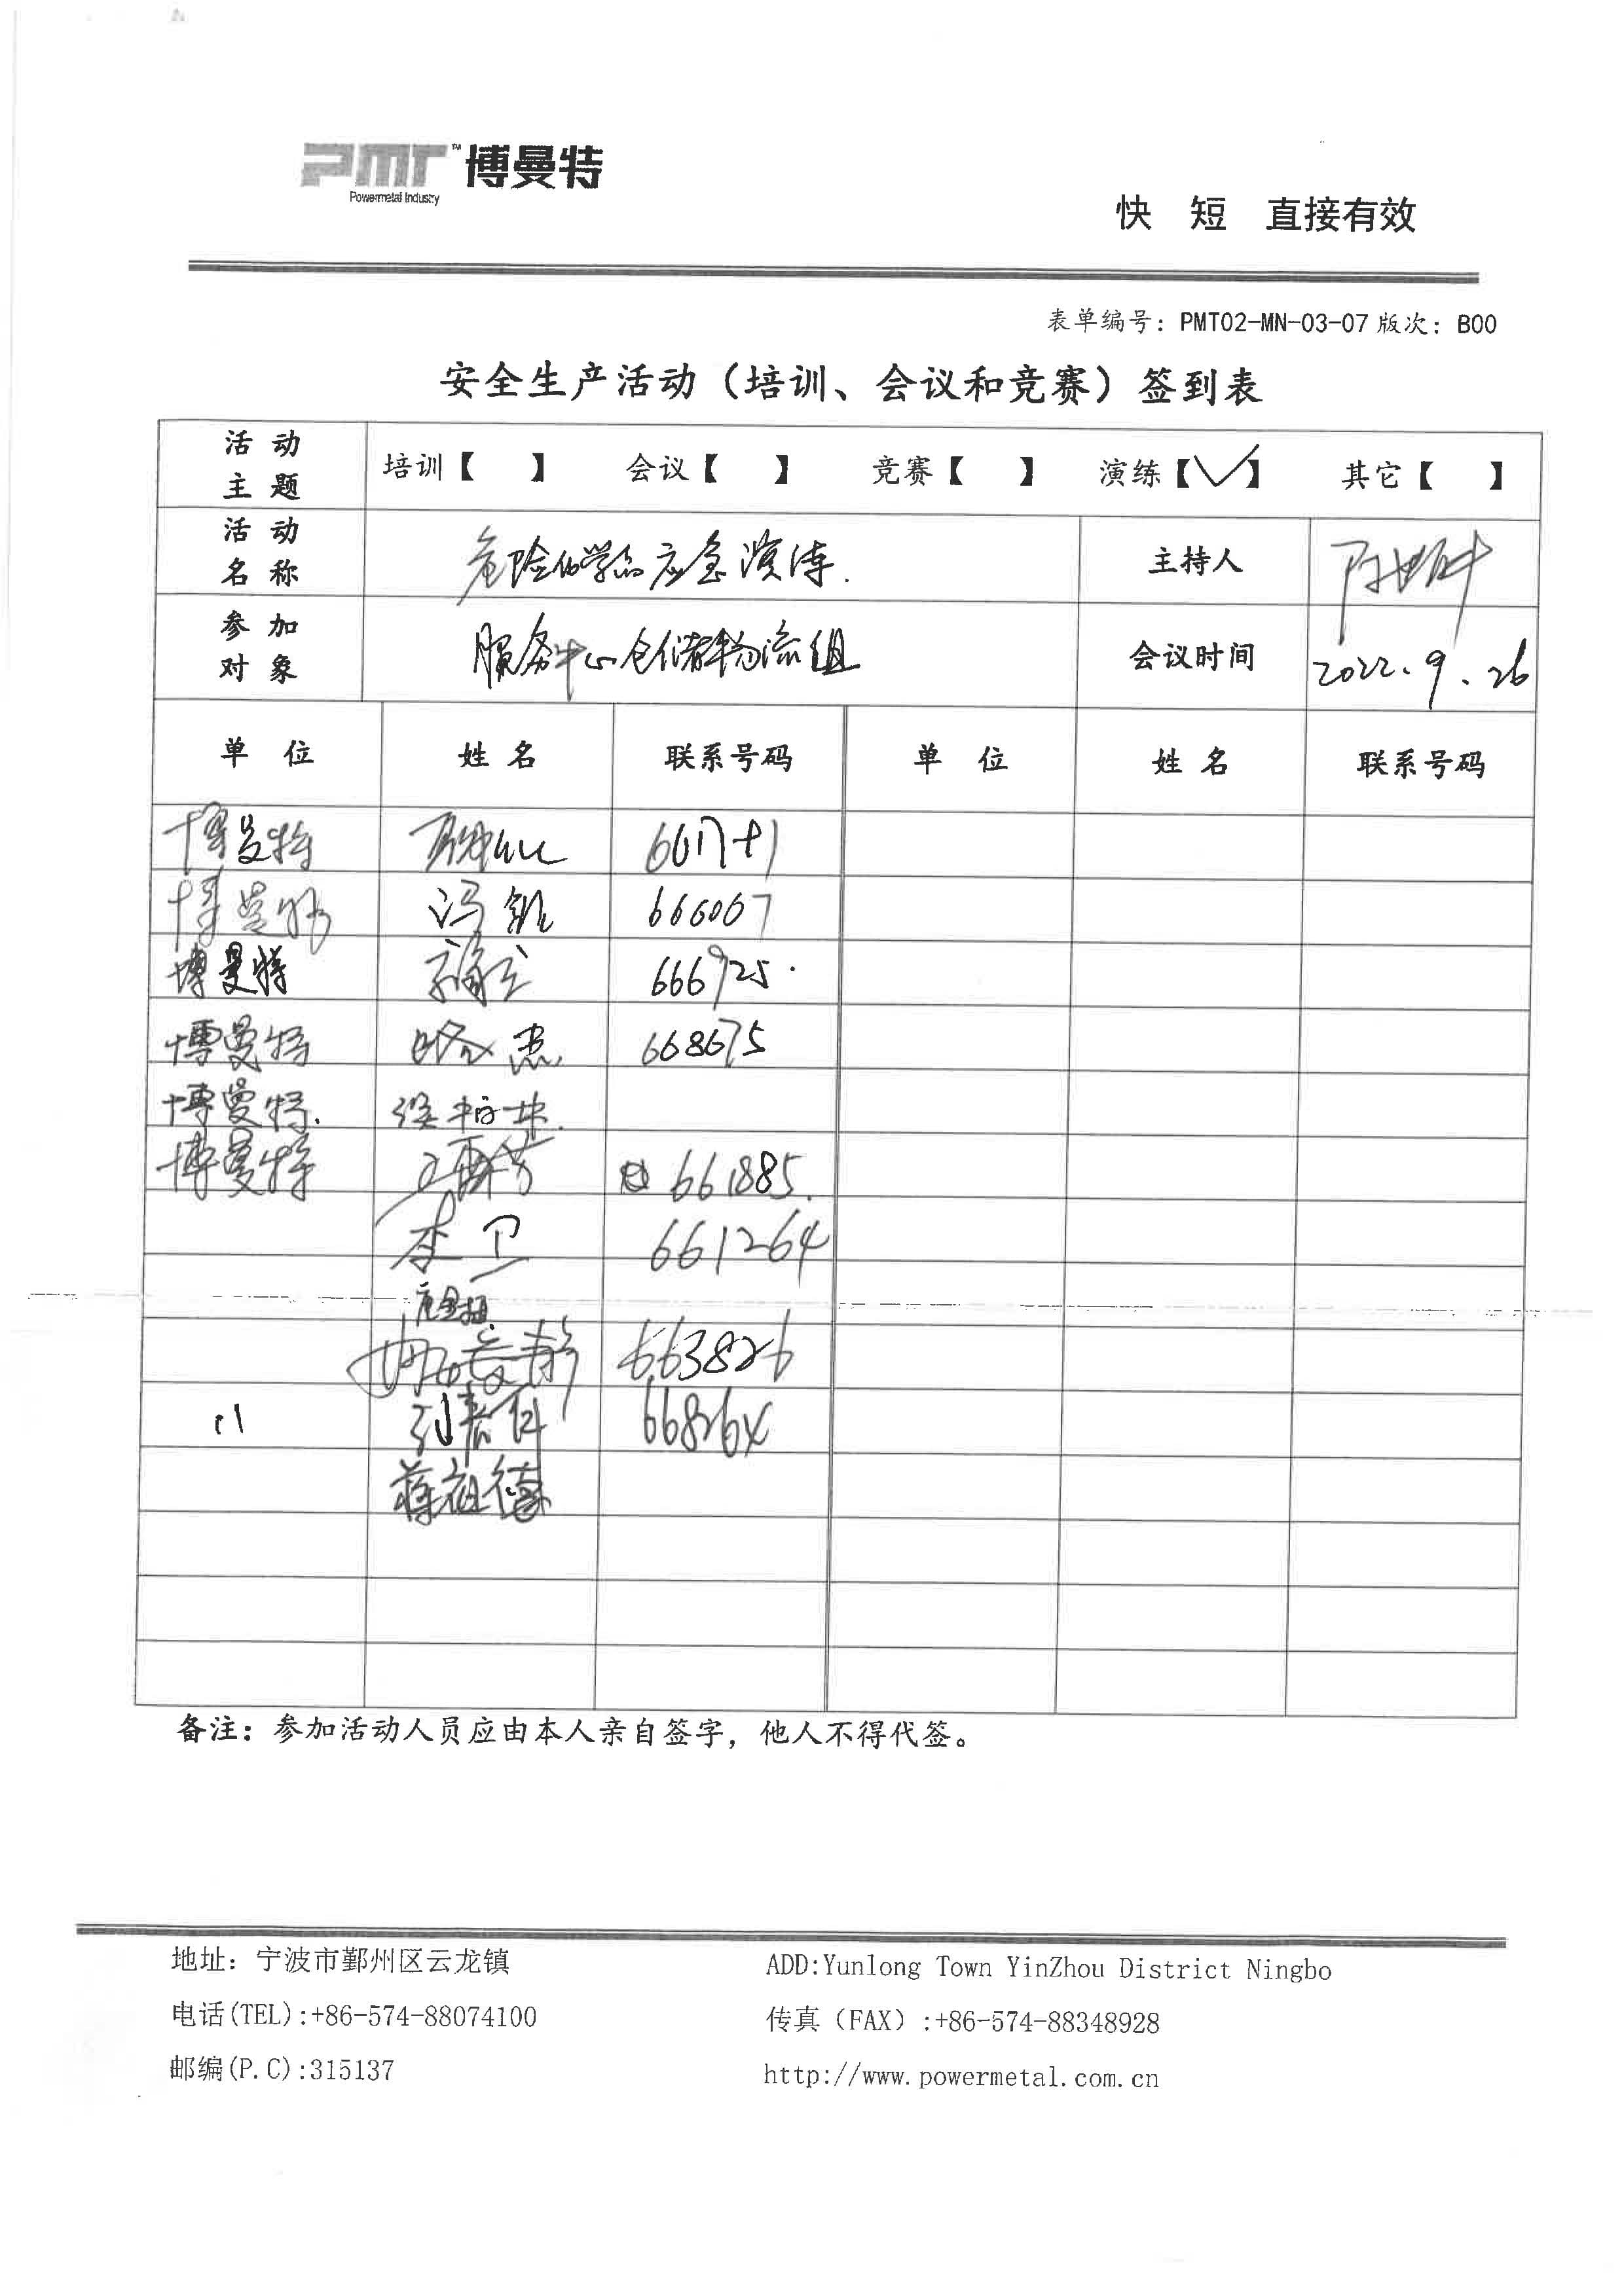 PMT™博曼特
Powermetal Industry
快 短 直接有效
表单编号：PMT02-MN-03-07 版次：B00
安全生产活动（培训、会议和竞赛）签到表
活动主题 培训【 】 会议【 】 竞赛【 】 演练【✓】 其它【 】
活动名称 危险化学品应急演练. 主持人
参加对象 服务中心仓储物流组 会议时间 2022.9.26
单位 姓名 联系号码 单位 姓名 联系号码
博曼特
博曼特 冯 666067
博曼特 666925.
博曼特 杰 668675
博曼特.
博曼特 661885.
李卫 661264
663826
刘 668264
蒋祖德
备注：参加活动人员应由本人亲自签字，他人不得代签。
地址：宁波市鄞州区云龙镇 ADD:Yunlong Town YinZhou District Ningbo
电话(TEL):+86-574-88074100 传真（FAX）:+86-574-88348928
邮编(P.C):315137 http://www.powermetal.com.cn